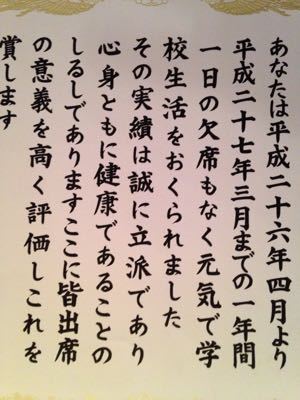 あなたは平成二十六年四月より
平成二十七年三月までの一年間
一日の欠席もなく元気で学
校生活をおくられました
その実績は誠に立派であり
心身ともに健康であることの
しるしでありますここに皆出席
の意義を高く評価しこれを
賞します